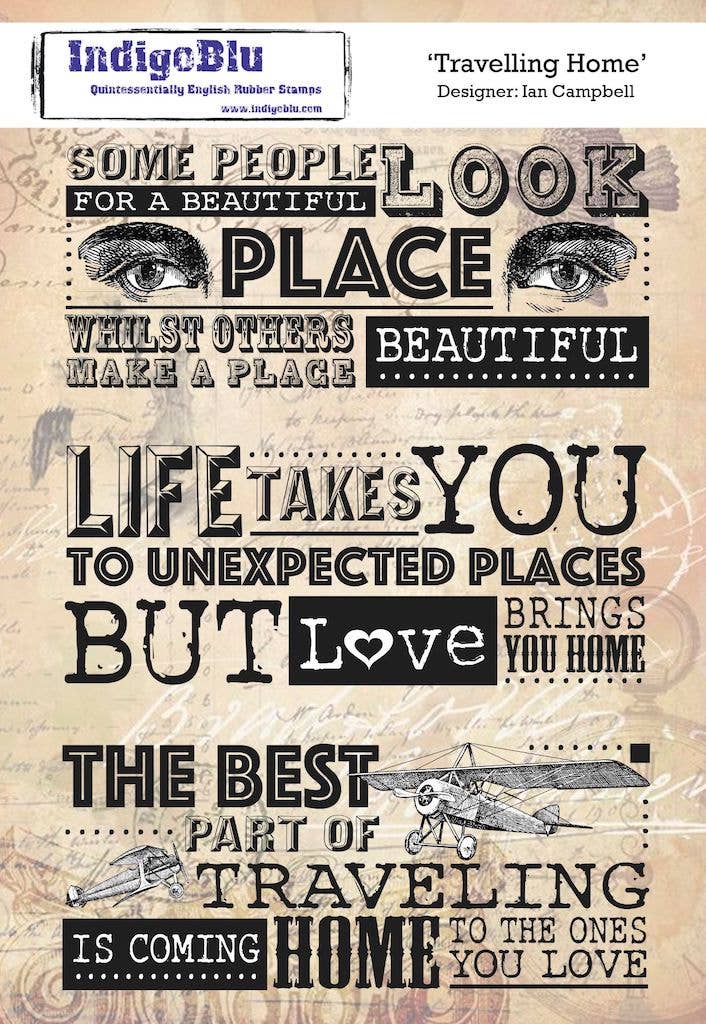 IndigoBlu
Quintessentially English Rubber Stamps
www.indigoblu.com
‘Travelling Home’
Designer: Ian Campbell
SOME PEOPLE LOOK
FOR A BEAUTIFUL
PLACE
WHILST OTHERS
MAKE A PLACE
BEAUTIFUL
LIFE TAKES YOU
TO UNEXPECTED PLACES
BUT Love BRINGS
YOU HOME
THE BEST
PART OF
TRAVELING
IS COMING HOME TO THE ONES
YOU LOVE